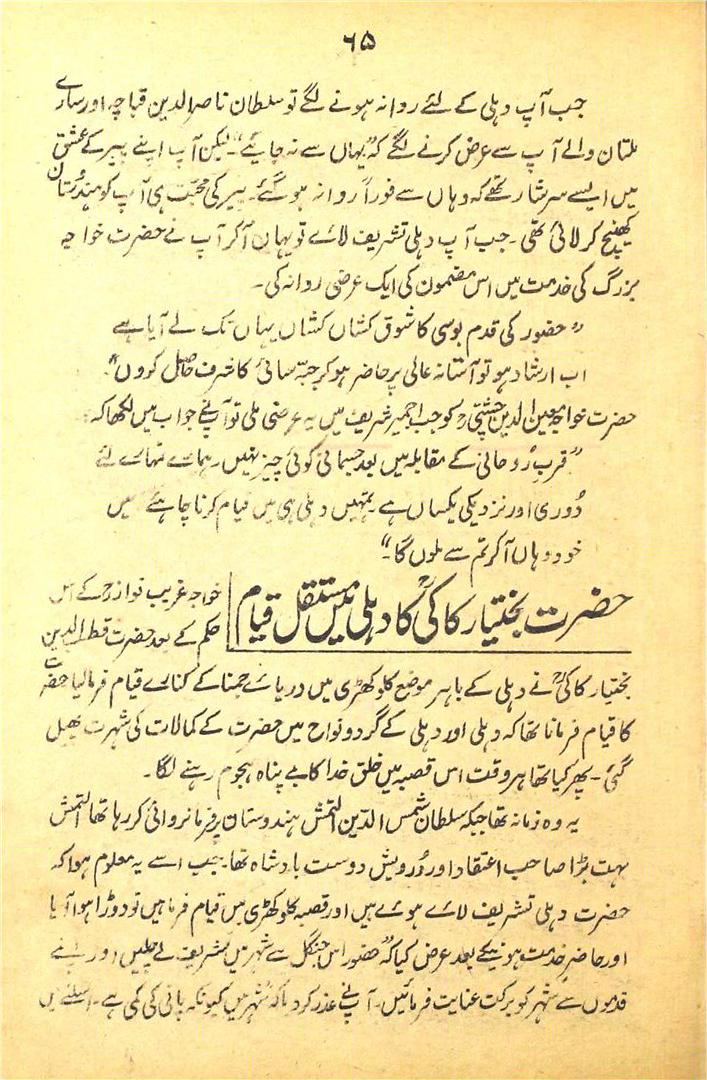 ۶۵
جب آپ دہلی کے لئے روانہ ہونے لگے تو سلطان ناصر الدین قباچہ اور سارے
ملتان والے آپ سے عرض کرنے لگے کہ "یہاں سے نہ جایئے"۔ لیکن آپ اپنے پیر کے عشق
میں ایسے سرشار تھے کہ وہاں سے فوراً روانہ ہوگئے۔ پیر کی محبت ہی آپ کو ہندوستان
کھینچ کر لائی تھی۔ جب آپ دہلی تشریف لائے تو یہاں آکر آپ نے حضرت خواجہ
بزرگ کی خدمت میں اس مضمون کی ایک عرضی روانہ کی۔
"حضور کی قدم بوسی کا شوق کشاں کشاں یہاں تک لے آیا ہے
اب ارشاد ہو تو آستانہ عالی پر حاضر ہوکر جبہ سائی کا شرف حاصل کروں"۔
حضرت خواجہ معین الدین چشتیؒ کو جب اجمیر شریف میں یہ عرضی ملی تو آپنے جواب میں لکھا کہ
"قرب رُوحانی کے مقابلہ میں بعد جسمانی کوئی چیز نہیں۔ ہمارے تمہارے لئے
دُوری اور نزدیکی یکساں ہے۔ تمہیں دہلی ہی میں قیام کرنا چاہئے میں
خود وہاں آکر تم سے ملوں گا"۔
حضرت بختیار کاکیؒ کا دہلی میں مستقل قیام
خواجہ غریب نوازؒ کے اس
حکم کے بعد حضرت قطب الدین
بختیار کاکیؒ نے دہلی کے باہر موضع کلوکھڑی میں دریائے جمنا کے کنارے قیام فرمالیا حضرت
کا قیام فرمانا تھا کہ دہلی اور دہلی کے گرد و نواح میں حضرت کے کمالات کی شہرت پھیل
گئی۔ پھر کیا تھا ہر وقت اس قصبہ میں خلق خدا کا بے پناہ ہجوم رہنے لگا۔
یہ وہ زمانہ تھا جبکہ سلطان شمس الدّین التمش ہندوستان پر فرمانروائی کر رہا تھا التمش
بہت بڑا صاحب اعتقاد اور درویش دوست بادشاہ تھا۔ جب اسے یہ معلوم ہوا کہ
حضرت دہلی تشریف لائے ہوئے ہیں اور قصبہ کلوکھڑی میں قیام فرما ہیں تو دوڑا ہوا آیا
اور حاضر خدمت ہونیکے بعد عرض کیا کہ "حضور اس جنگل سے شہر میں تشریف لے چلیں اور اپنے
قدموں سے شہر کو برکت عنایت فرمائیں۔ آپنے عذر کردیا کہ شہر میں کیونکہ پانی کی کمی ہے۔ اسلئے میں